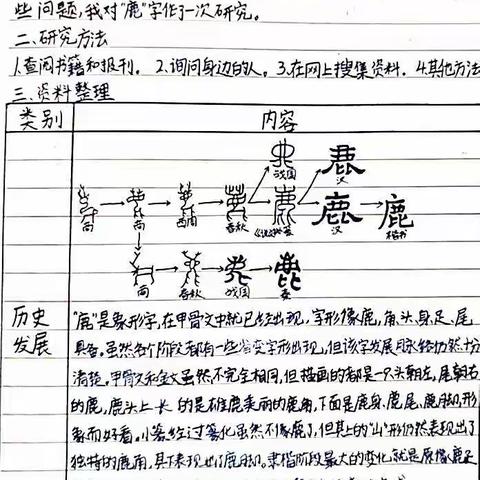 些问题,我对“鹿”字作了一次研究。
二、研究方法
1.查阅书籍和报刊。 2.询问身边的人。 3.在网上搜集资料。 4.其他方法
三、资料整理
类别 内容
战国 汉
商 商 西周 春秋 《说文》小篆 汉 鹿 楷书
商 春秋 战国 秦
历史
发展
“鹿”是象形字,在甲骨文中就已经出现,字形像鹿,角、头、身、足、尾
具备。虽然各个阶段都有一些省变字形出现,但该字发展脉络仍然十分
清楚。甲骨文和金文虽然不完全相同,但描画的都是一只头朝左,尾朝右
的鹿,鹿头上长的是雄鹿美丽的鹿角,下面是鹿身、鹿尾、鹿脚,形
象而好看。小篆经过篆化虽然不像鹿了,但其上的“山”形仍然表现出了
独特的鹿角,其下表现出了鹿脚。隶楷阶段最大的变化就是原像鹿足